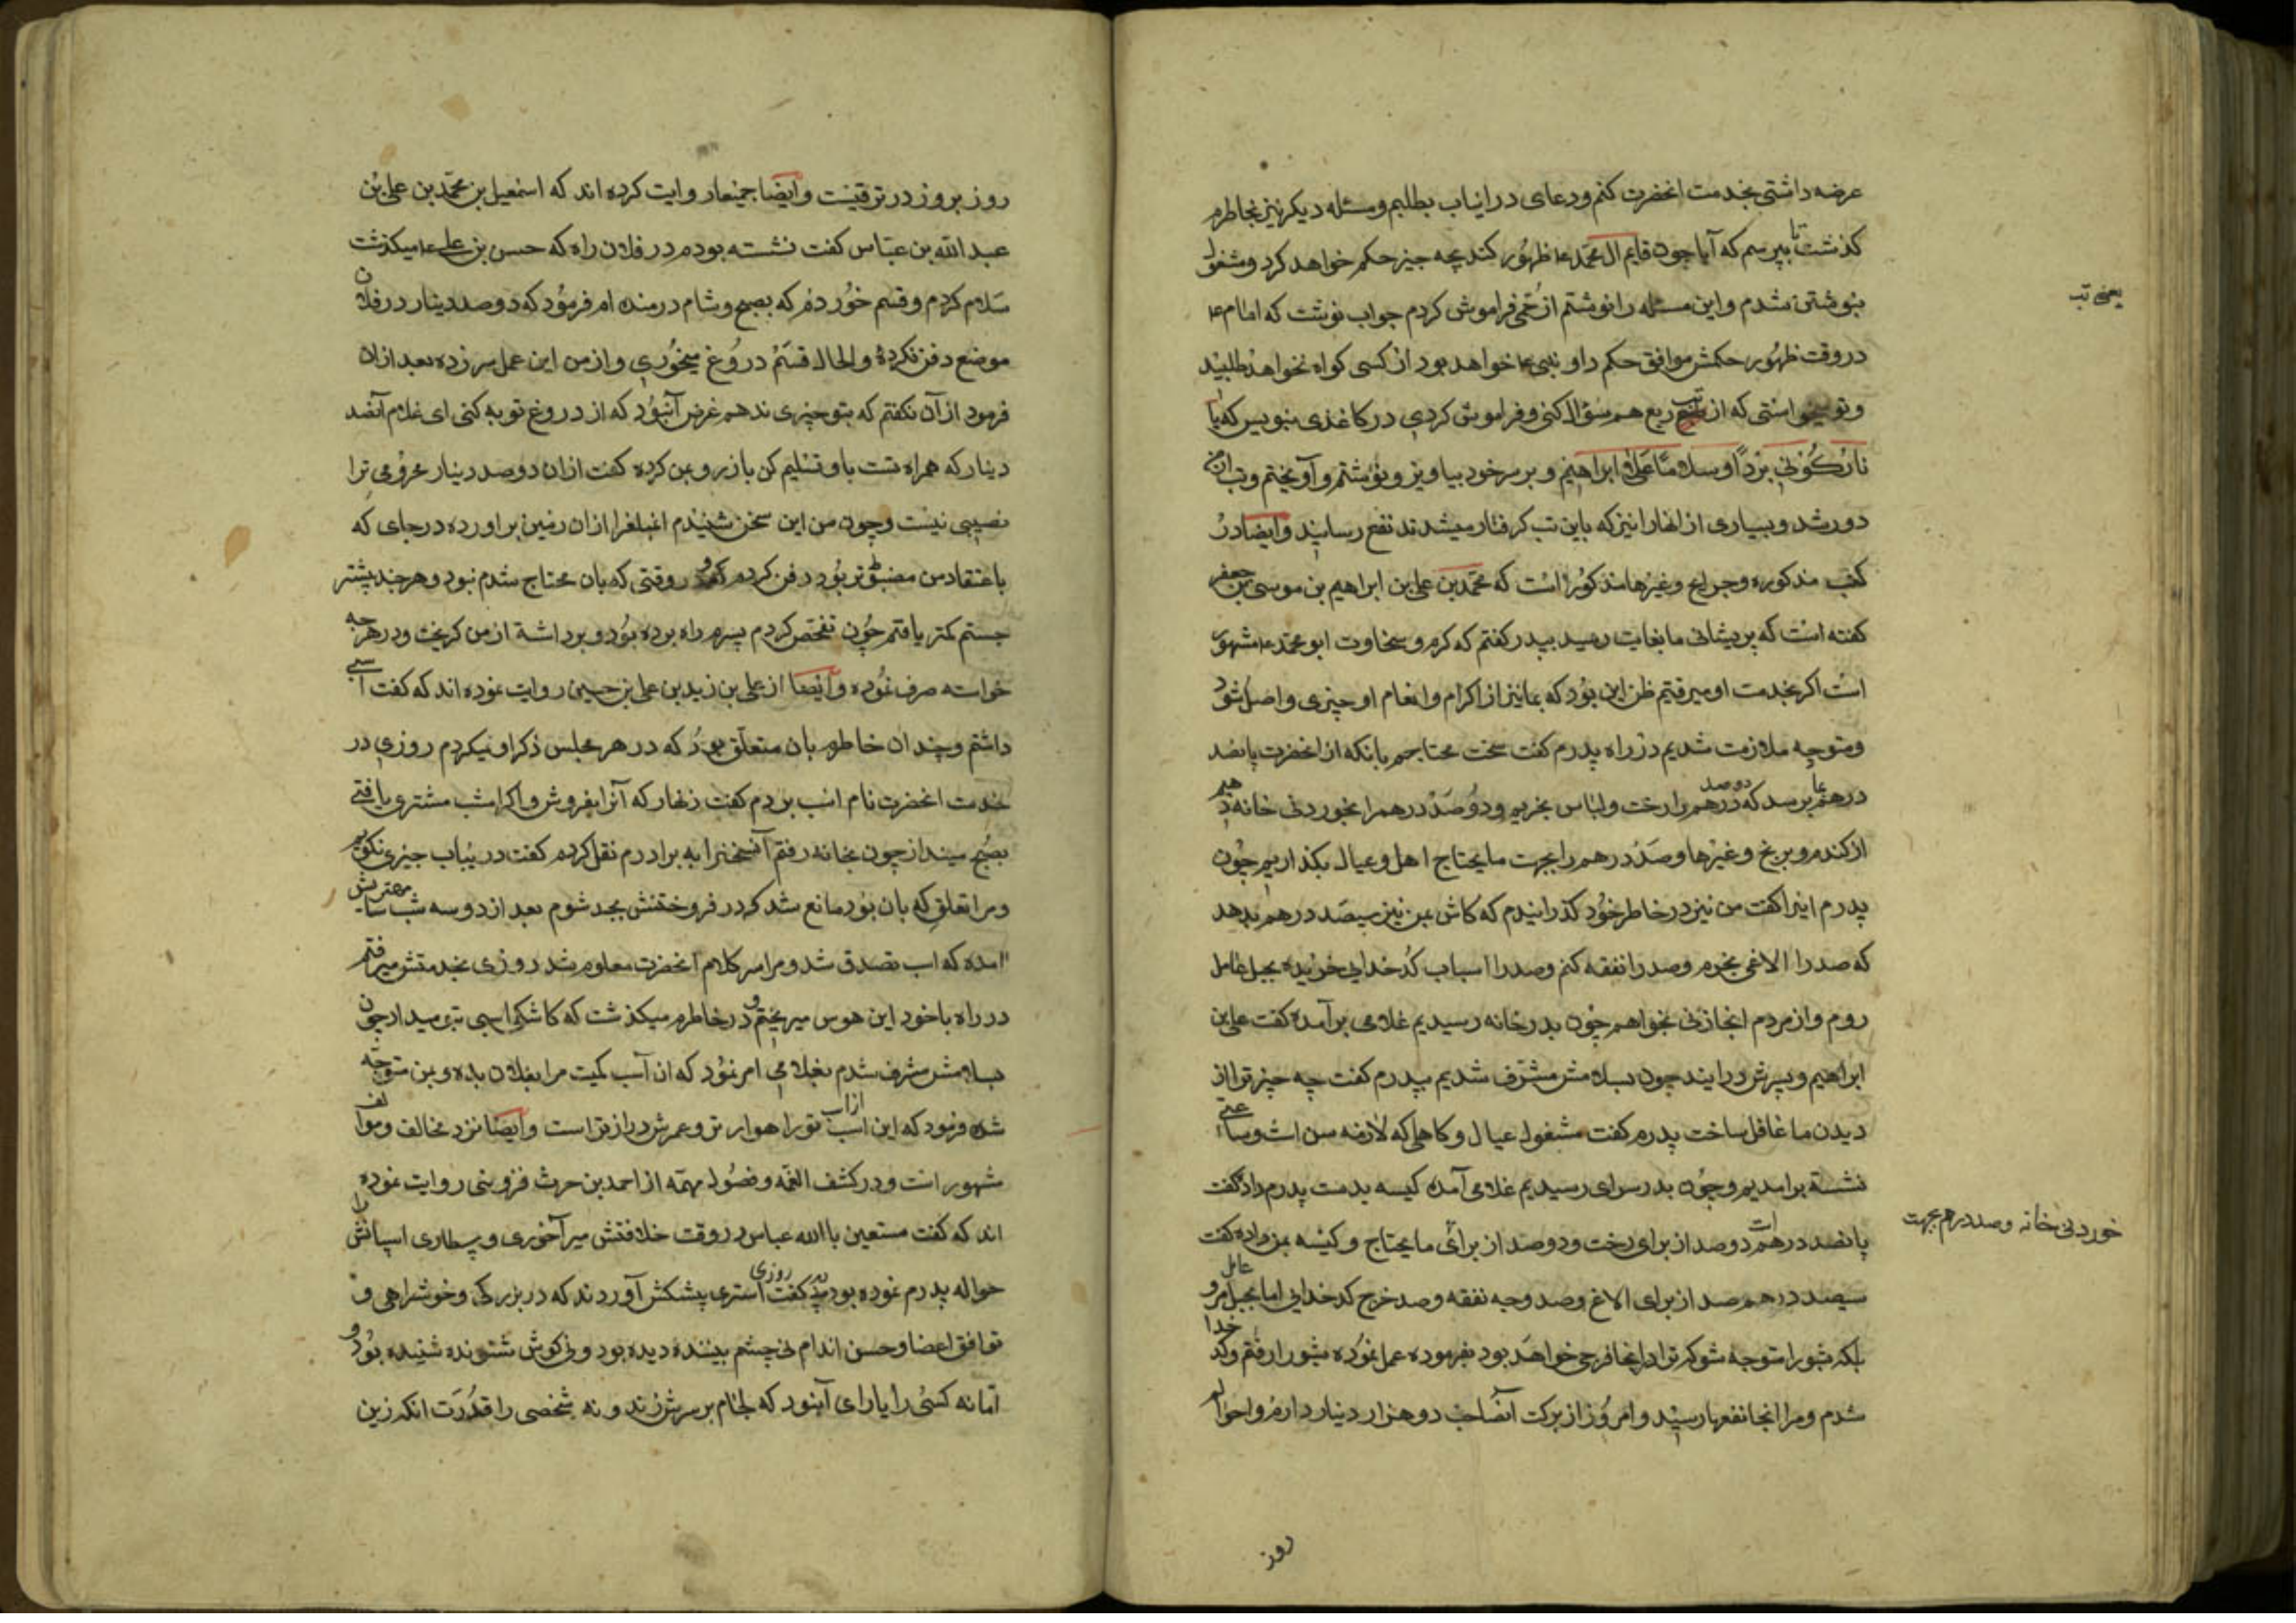 عرضه داشتی بخدمت انحضرت کنم و دعای در اینباب بطلبم و مسئله دیکر نیز بخاطرم
کذشت تا بپرسم که آیا چون قایم ال محمد ع ظهور کند بچه چیز حکم خواهد کرد و مشغول
بنوشتن شدم و این مسئله را نوشتم از حمی فراموش کردم جواب نوشت که امام ع
یعنی تب
در وقت ظهور حکمش موافق حکم داود نبی ع خواهد بود از کسی کواه نخواهد طلبید
و تو میخواستی که از تب ربع هم سؤال کنی و فراموش کردی در کاغذی بنویس که یا
نار کونی بردا و سلاما علی ابراهیم و بر سر خود بیاویز و نوشتم و آویختم و تب ازمن
دور شد و بسیاری از انهارا نیز که باین تب کرفتار میشدند نفع رسانید و ایضا در
کتب مذکوره و جرایح و غیرها مذکور است که محمد بن علی بن ابراهیم بن موسی بن جعفر
کفته است که پریشانی ما بغایت رسید بپدر کفتم که کرم و سخاوت ابو محمد ع مشهور
است اکر بخدمت او میرفتیم ظن این بود که بما نیز از اکرام و انعام او چیزی واصل شود
و متوجه ملازمت شدیم در راه پدرم کفت سخت محتاجم بانکه از انحضرت پانصد
درهم بما برسد که دوصد درهم را رخت و لباس بخریم و دوصد درهم را بخوردنی خانه دهیم
از کندم و برنج و غیرها و صد درهم را بجهت مایحتاج اهل و عیال بکذاریم چون
پدرم اینرا کفت من نیز در خاطر خود کذرانیدم که کاش بمن نیز سیصد درهم بدهد
که صد را الاغی بخرم و صد را نفقه کنم و صد را اسباب کدخدایی خریده بجبل عامل
روم و از مردم انجا زنی بخواهم چون بدر خانه رسیدیم غلامی برآمده کفت علی بن
ابراهیم و پسرش درایند چون بسلامش مشرف شدیم بپدرم کفت چه چیز ترا از
دیدن ما غافل ساخت پدرم کفت مشغولی عیال و کاهلی که لازمه سن است و ساعتی
نشسته برامدیم و چون بدر سرای رسیدیم غلامی آمده کیسه بدست پدرم داد کفت
پانصد درهم است دوصد از برای رخت و دوصد از برای مایحتاج و کیسه بمن داده کفت
خوردنی خانه و صد درهم بجهت
سیصد درهم صد از برای الاغ و صد وجه نفقه و صد خرج کدخدایی اما بجبل عامل مرو
بلکه بشورا متوجه شو که ترا در انجا فرجی خواهد بود بفرموده عمل نموده بشورا رفتم و کدخدا
شدم و مرا انجا نفعها رسید و امروز از برکت آنصاحب دو هزار دینار دارم و احوالم
روز
روز بروز در ترقیست و ایضا جمیعا روایت کرده اند که اسمعیل بن محمد بن علی بن
عبد الله بن عباس کفت نشسته بودم در فلان راه که حسن بن علی ع میکذشت
سلام کردم و قسم خوردم که بصبح و شام درمنده ام فرمود که دوصد دینار در فلان
موضع دفن نکردهٔ و الحال قسم دروغ میخوری و از من این عمل سر زده بعد ازان
فرمود از آن نکفتم که بتو چیزی ندهم غرض آنبود که از دروغ توبه کنی ای غلام آنصد
دینار که همراه تست باو تسلیم کن باز رو بمن کرده کفت ازان دوصد دینار محرومی ترا
نصیبی نیست و چون من این سخن شنیدم انمبلغرا ازان زمین براورده در جای که
باعتقاد من مضبوط تر بود دفن کردم و در وقتی که بان محتاج شدم نبود و هر چند بیشتر
جستم کمتر یافتم چون تفحص کردم پسرم راه برده بود و برداشته از من کریخت و در هر چه
خواسته صرف نموده و ایضا از علی بن زید بن علی بن حسین روایت نموده اند که کفت اسبی
داشتم و چندان خاطرم بان متعلق بود که در هر مجلس ذکر او میکردم روزی در
خدمت انحضرت نام اسب بردم کفت زنهار که آنرا بفروش و اکر امشب مشتری یافتی
بصبح مینداز چون بخانه رفتم آنسخنرا به برادرم نقل کردم کفت درینباب چیزی نکویم
و مرا تعلقی که بان بود مانع شد که در فروختنش بجد شوم بعد از دو سه شب سایس مهترش
امده که اسب تصدق شد و مرا سر کلام انحضرت معلوم شد روزی بخدمتش میرفتم
در راه با خود این هوس میپختم و در خاطرم میکذشت که کاشکی اسبی بمن میداد چون
بسلامش مشرف شدم بغلامی امر نمود که ان اسب کمیت مرا بفلان بده و بمن متوجه
شده فرمود که این اسب از اسب تو راهوارتر و عمرش درازتر است و ایضا نزد مخالف و موالف
مشهور است و در کشف الغمه و فصول مهمه از احمد بن حرث قزوینی روایت نموده
اند که کفت مستعین بالله عباسی در وقت خلافتش میرآخوری و بیطاری اسبانش را
حواله پدرم نموده بود پدر کفت روزی استری پیشکش آوردند که در بزرکی و خوشراهی و
توافق اعضا و حسن اندام نی چشم بیننده دیده بود و نی کوش شنونده شنیده بود و
امّا نه کسی را یارای آنبود که لجام بر سرش زند و نه شخصی را قدرت انکه زین